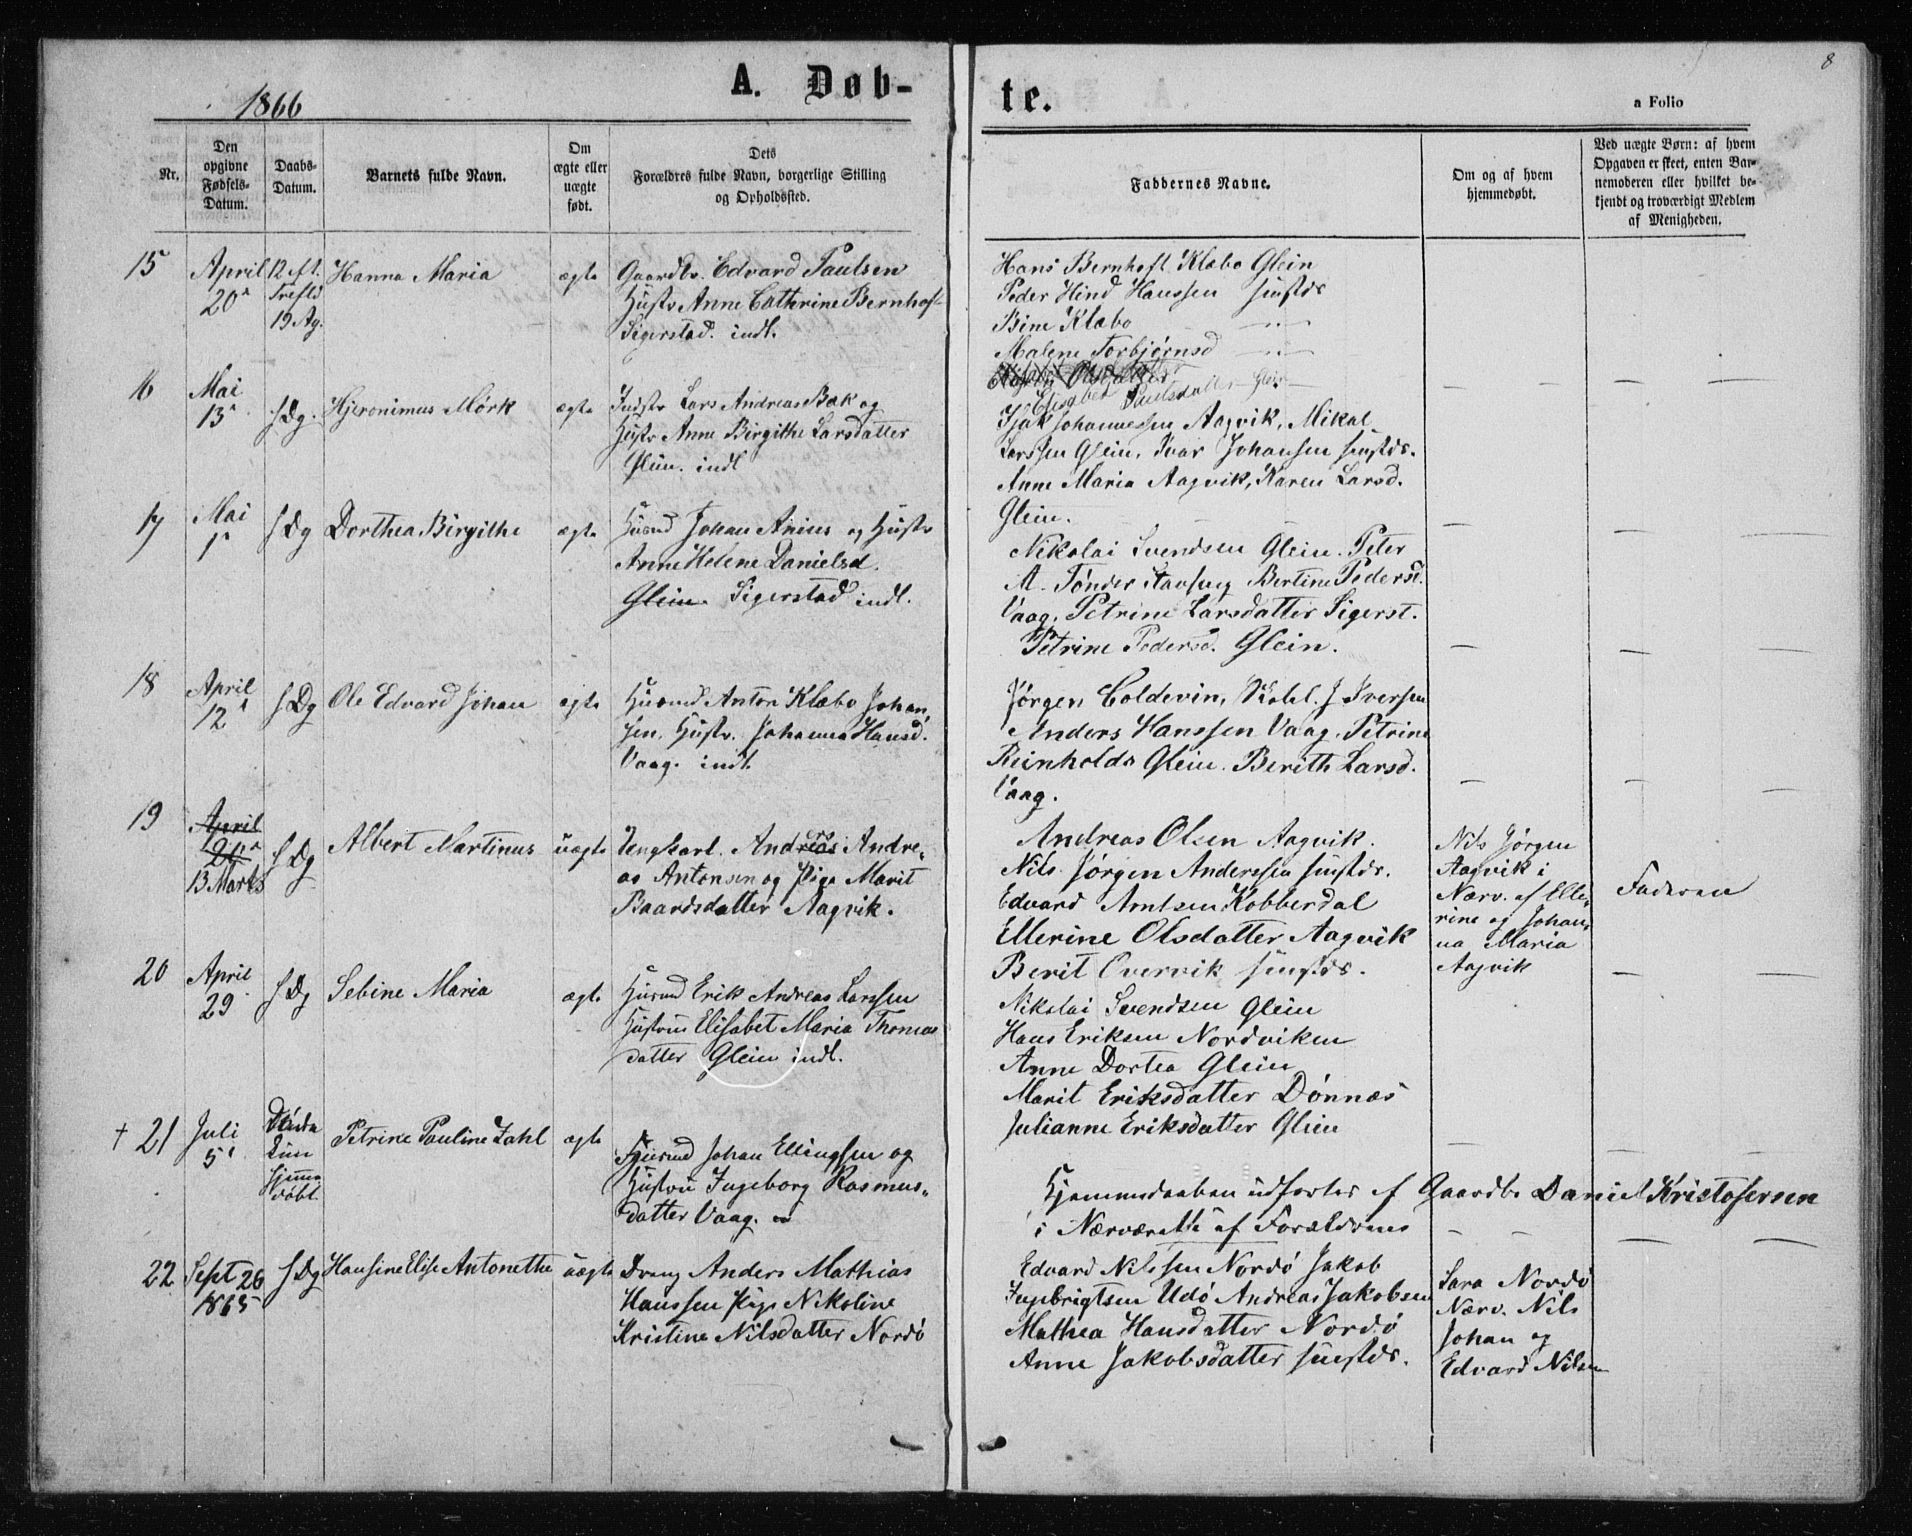 8
1866
A. Døb-
te.
a Folio
Nr.
Den
opgivne
Fødsels-
Datum.
Daabs-
Datum.
Barnets fulde Navn.
Om
ægte eller
uægte
født.
Dets
Forældres fulde Navn, borgerlige Stilling
og Opholdssted.
Faddernes Navne.
Om og af hvem
hjemmedøbt.
Ved uægte Børn: af hvem
Opgaven er skeet, enten Bar-
nemoderen eller hvilket be-
kjendt og troværdigt Medlem
af Menigheden.
15
April
20
12 eft.
Trefld
19 Ag.
Hanna Maria
ægte
Gaardbr. Edvard Paulsen
Hustr Anne Cathrine Bernhoft
Sigerstad. indl.
Hans Bernhoft Klæbo Glein
Peder Hind Hanssen sustds
Bine Klæbo
Malene Torbjørnsd
Olsdatter
Elisabet Paulsdatter Glein
16
Mai
13
s Dg.
Hjeronimus Mörk
ægte
Indstr Lars Andreas Bak og
Hustr Anne Birgithe Larsdatter
Glein. indl
Isak Johannessen Aagvik, Mikal
Larssen Glein, Ivar Johansen sustds.
Anne Maria Aagvik, Karen Larsd.
Glein.
17
Mai
1
s Dg
Dorthea Birgithe
ægte
Husmd Johan Anius og Hustr
Anne Helene Danielsd.
Glein. Sigerstad indl.
Nikolai Svendsen Glein. Peter
M. Tönder Bertine Peders.
Vaag, Petrine Larsdatter Sigerst.
Petrine Pedersd. Glein.
18
April
12
s Dg
Ole Edvard Johan
ægte
Husmd Anton Klæbo Johan
sen, Hustr. Johanna Hansd.
Vaag. indl.
Jörgen Coldevin, J Iversen
Anders Hanssen Vaag, Petrine
Reinholds Glein. Berith Larsd.
Vaag.
19
April
13 Marts
s Dg
Albert Martinus
uægte
Ungkarl. Anders Andre-
as Antonsen og Pige Marit
Baardsdatter Aagvik.
Andreas Olsen Aagvik.
Nils Jörgen Anderssen sustds.
Edvard Arntsen Kobberdal
Ellerine Olsdatter Aagvik
Berit Overvik sustds.
Nils Jörgen
Aagvik i
Nærv. af Elle-
rine og Johan-
na Maria
Aagvik
Faderen
20
April
29
s Dg
Sebine Maria
ægte
Husmd Erik Andreas Larssen
Hustru Elisabet Maria Thomas
datter Glein indl.
Nikolai Svendsen Glein
Hans Eriksen Nordviken
Anne Dortea Glein
Marit Eriksdatter Dönnæs
Julianne Eriksdatter Glein
† 21
Juli
5
hjemme
döbt
Petrine Pauline Zahl
ægte
Husmd Johan Ellingsen og
Hustru Ingeborg Rasmus-
datter Vaag.
Hjemmedaaben udfortes af Gaardbr Daniel Kristofersen
i Nærværelse af Forældrenes
22
Sept 26
1865
s Dg
Hansine Elise Antonette
uægte
Dreng Anders Mathias
Hanssen Pige Nikoline
Kristine Nilsdatter Nordö
Edvard Nilssen Nordö Jakob
Ingebrigtsen Udö Andreas Jakobsen
Mathea Hansdatter Nordö
Anne Jakobsdatter sustds.
Sara Nordö
Nærv. Nils
Johan og
Edvard Nilsen